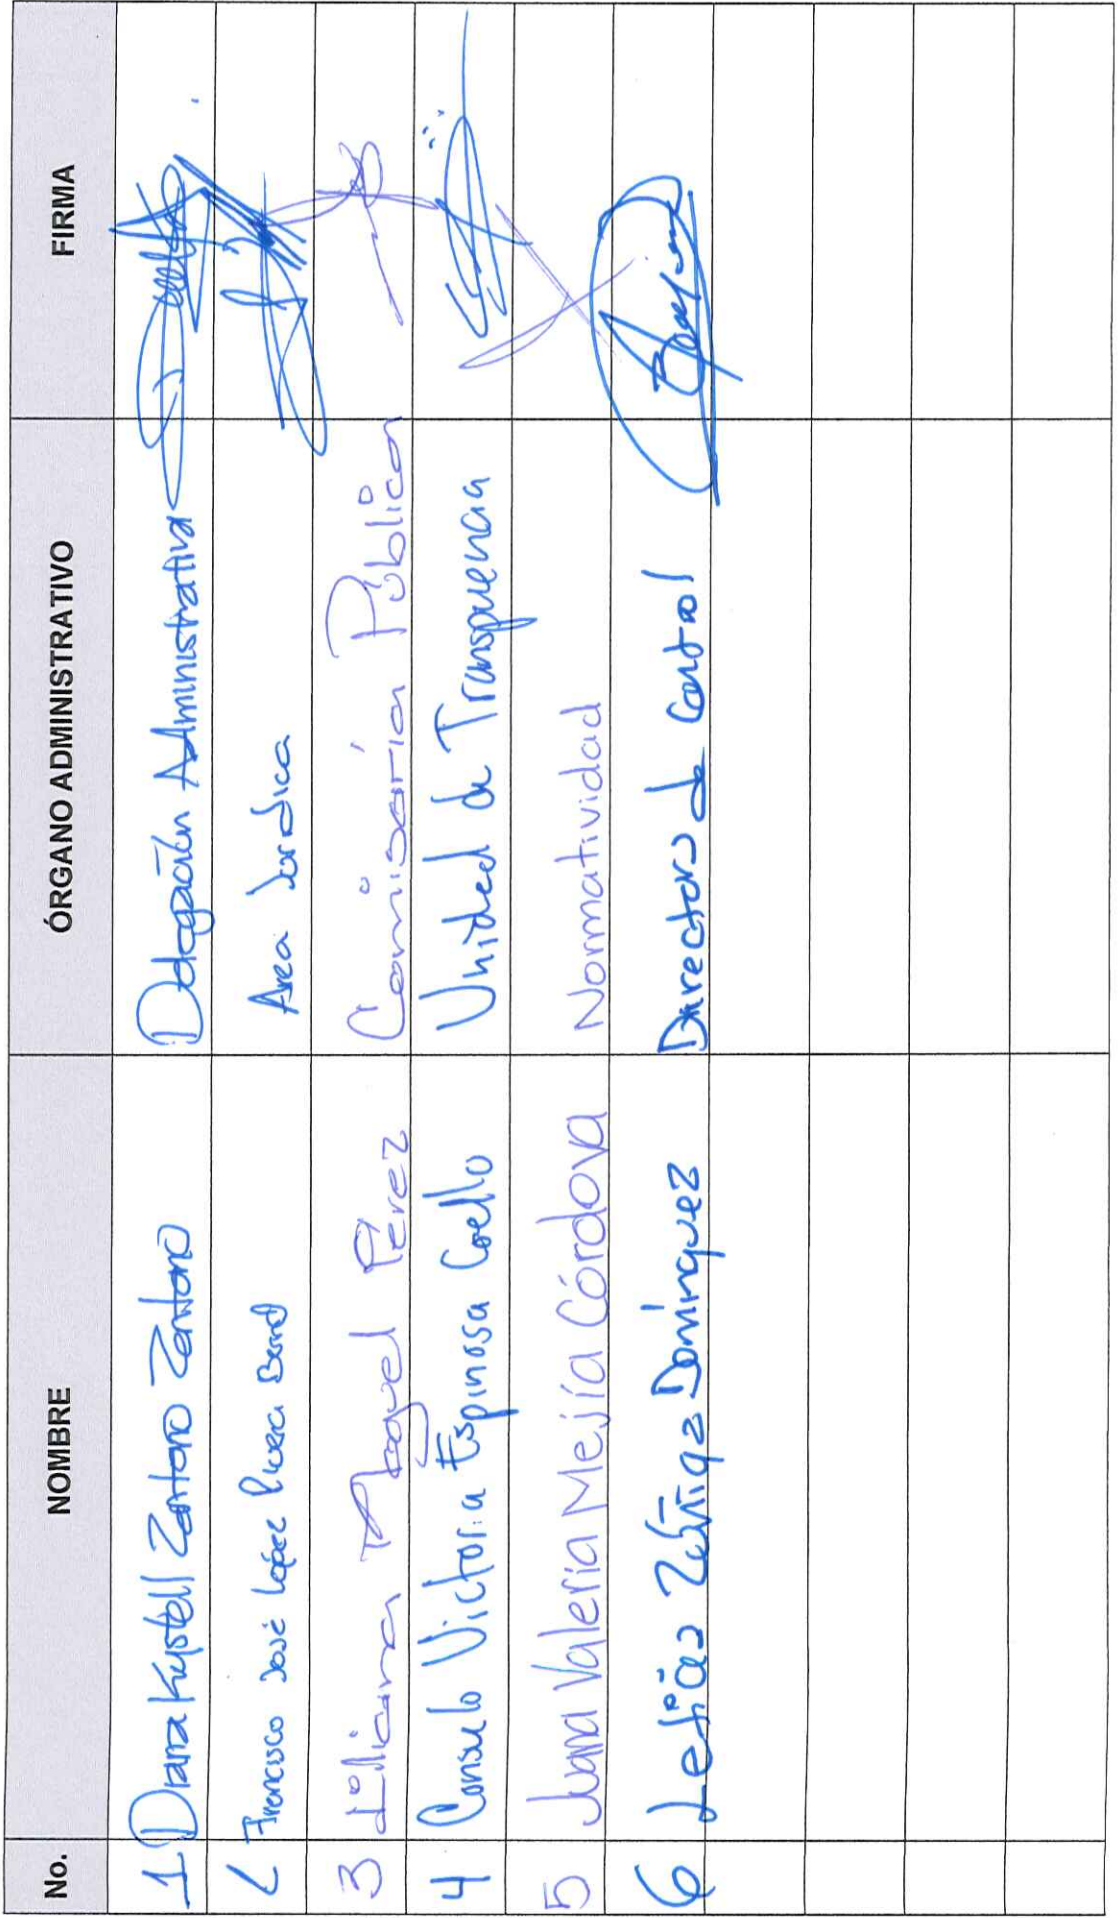 No. NOMBRE ÓRGANO ADMINISTRATIVO FIRMA
1 Diana Krystell Zenteno Zenteno Delegación Administrativa
2 Francisco José López Rivera Area Jurídica
3 Liliana Pérez Comisaría Pública
4 Consuelo Victoria Espinosa Coello Unidad de Transparencia
5 Juana Valeria Mejía Córdova Normatividad
6 Leticia Zúñiga Domínguez Directora de Control